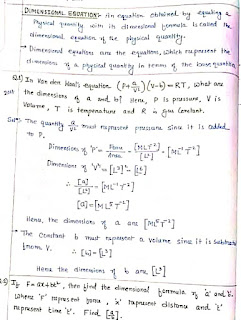 DIMENSIONAL EQUATION:- An equation obtained by equating a
Physical quantity with its dimensional formula is called the
dimensional equation of the physical quantity.
→ Dimensional equations are the equations, which represent the
dimensions of a physical quantity in terms of the base quantities
Q.1) In Van der Waal's equation (P+a/V²)(V-b)=RT, what are
the dimensions of a and b? Here, P is pressure, V is
Volume, T is temperature and R is gas Constant.
Sol:- The quantity a/V² must represent pressure since it is added
to P.
Dimensions of 'P' = Force/Area = [MLT⁻²]/[L²] = [ML⁻¹T⁻²]
Dimensions of 'V²' = [L³]² = [L⁶]
∴ [a]/[L⁶] = [ML⁻¹T⁻²]
[a] = [ML⁵T⁻²]
Hence, the dimensions of a are [ML⁵T⁻²]
→ The Constant b must represent a volume since it is subtracted
from V.
∴ [b] = [L³]
Hence the dimensions of b are [L³]
If F = ax+bt², then find the dimensional formula of 'a' and 'b'.
where 'F' represent force, 'x' represent distance and 't'
represent time 't'. Find